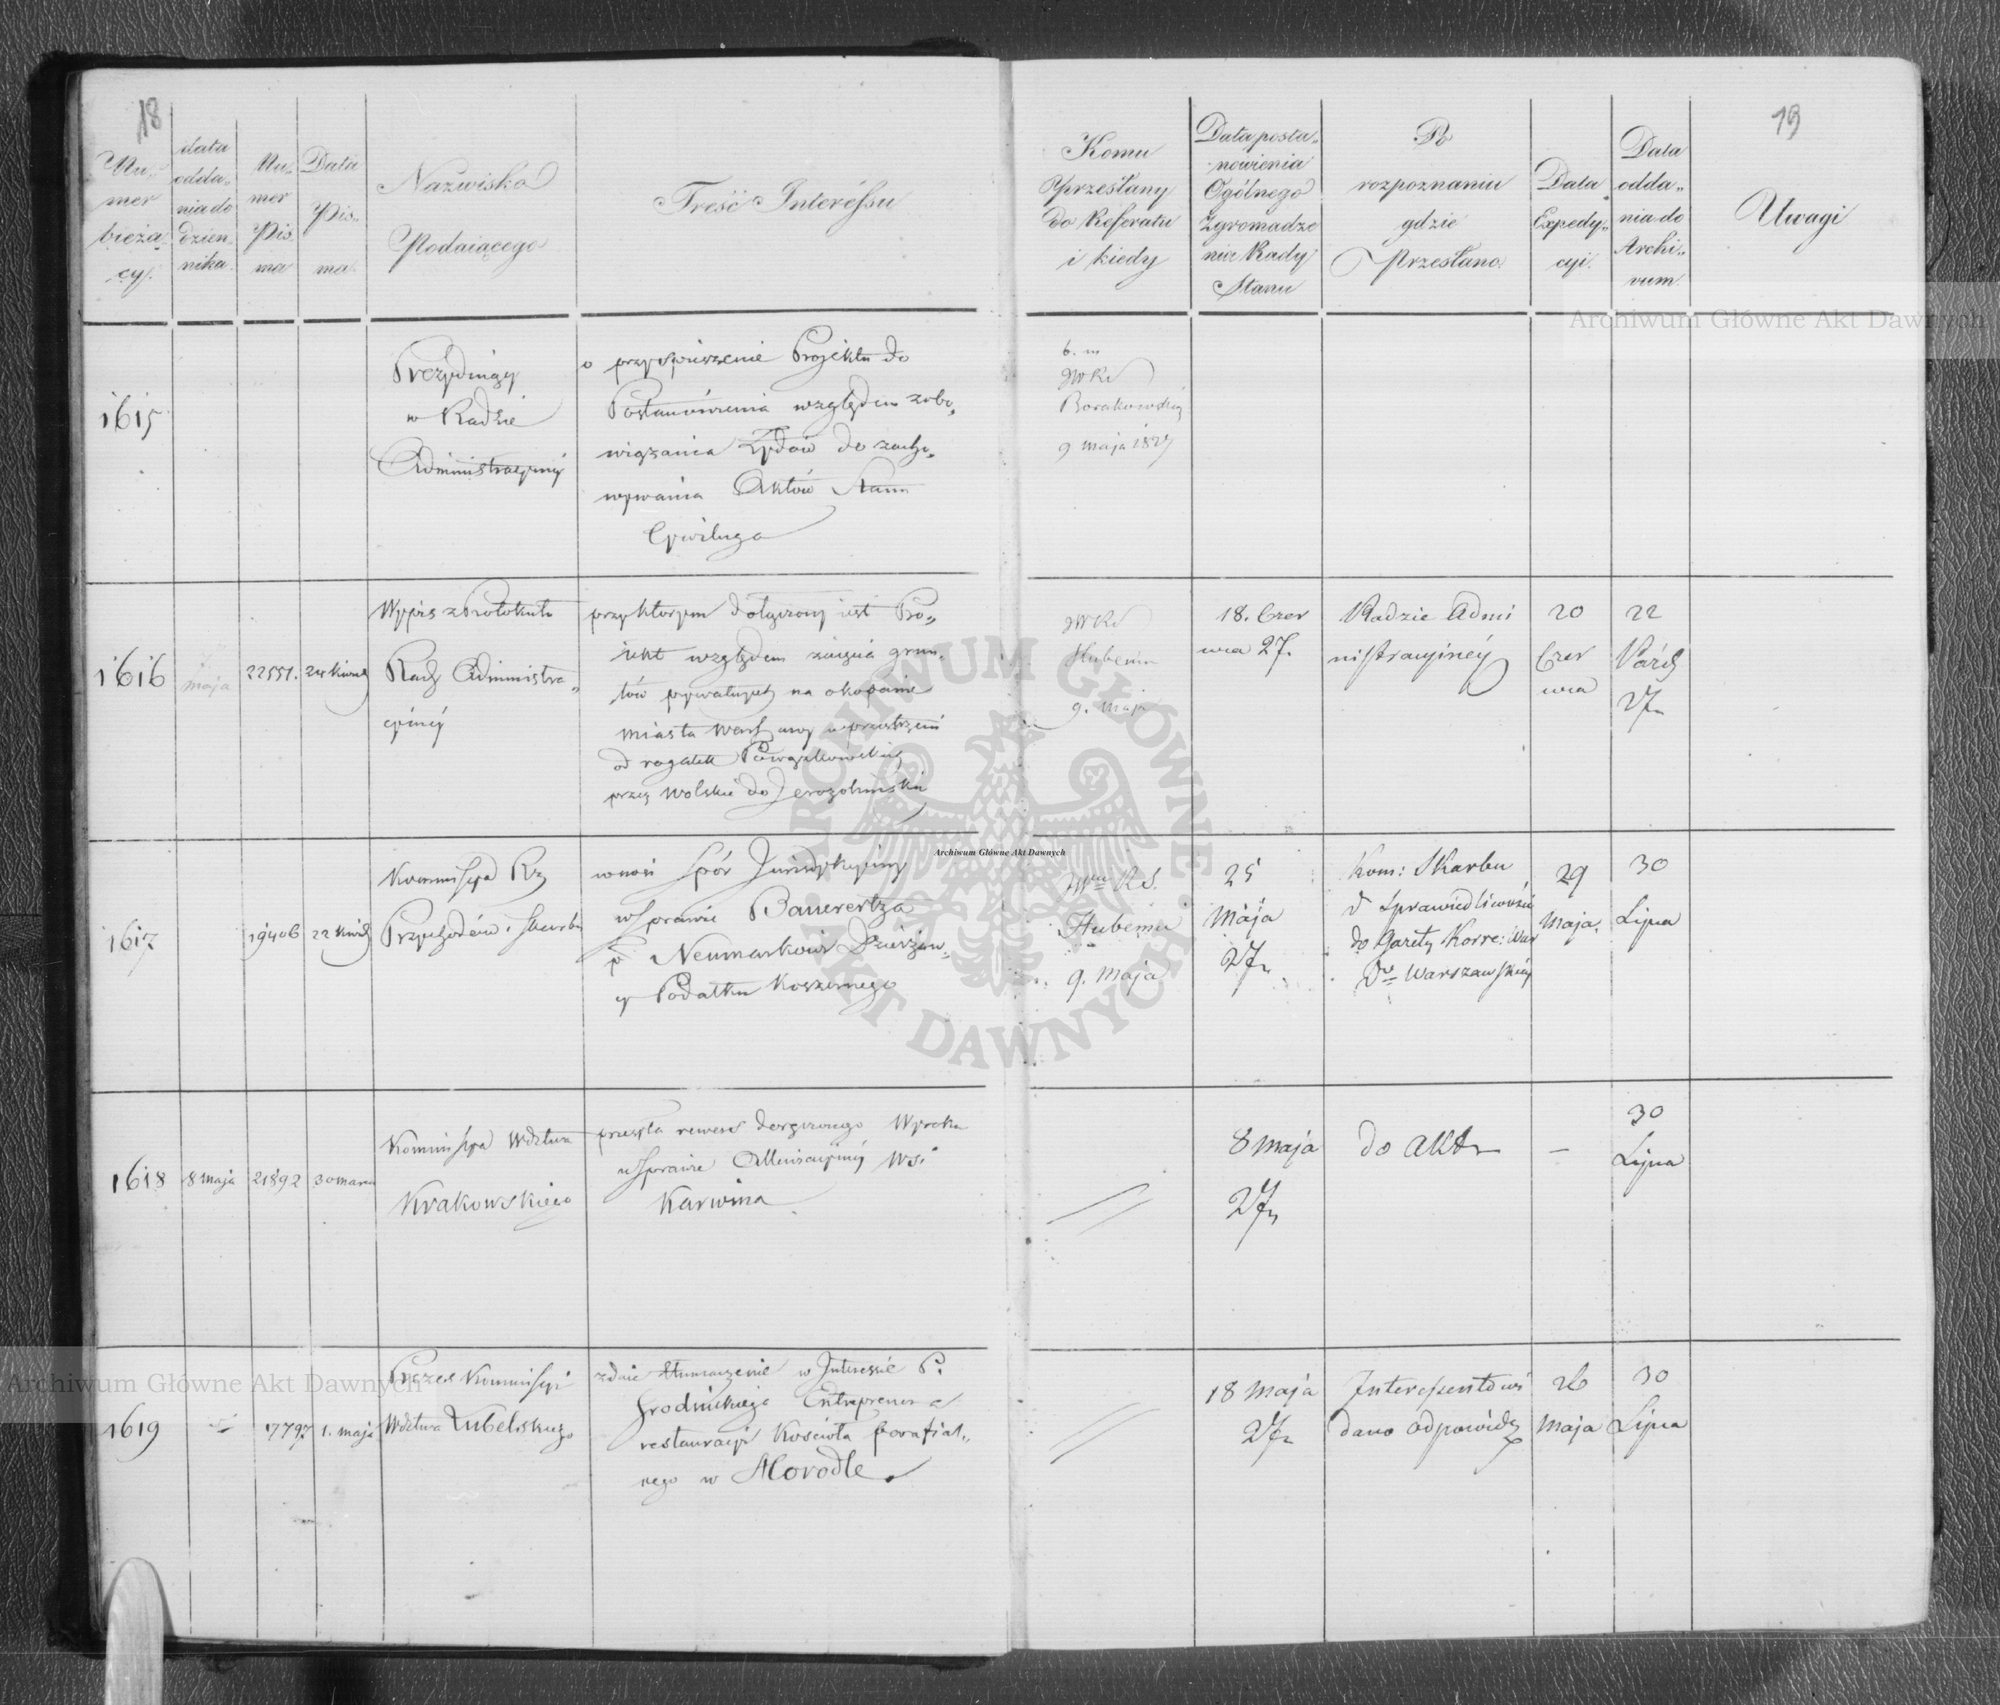 18
Nu-
mer
bieżą-
cy.
data
odda-
nia do
dzien-
nika.
Nu-
mer
Pis
ma
Data
Pis-
ma.
Nazwisko
Podaiącego
Treść Interéssu
Komu
Przesłany
do Referatu
i kiedy
Data posta-
nowienia
Ogólnego
Zgromadze
nia Rady
Stanu
Po
rozpoznaniu
gdzie
Przesłano.
Data
Expedy-
cyi.
Data
odda-
nia do
Archi-
vum.
19
Uwagi
1615
Prezyduiący
w Radzie
Administracyinéy
o przyspieszenie Projektu do
Postanowienia względem zobo-
wiązania Żydów do zacho-
wywania Aktów Stanu
Cywilnego
6. m
JWRS
Borakowskiy
9 maja 1827
1616
maja
22551.
24 kwiet
Wypis z Protokułu
Rady Administra-
cyinéy
przy którym dołączony iest Pro-
jekt względem zaięcia grun-
tów prywatnych na okopanie
miasta Warszawy w przestrzeni
od rogatek Powązkowskich
przez Wolskie do Jerozolimskich
JWRS
Hubemu
9. maja
18. Czer
wca 27.
Radzie Admi
nistracyinéy
20
Czer
wca
22
Paźd
27
1617
19406
22 kwiet
Kommissya Rz
Przychodów i Skarbu
wnosi spór Jurisdykcyiny
w sprawie Bauerertza
p Neumarkowi Dzierżaw-
cy Podatku Koszernego
JWu R.S.
Hubemu
9. maja
25
Maja
27
Kom: Skarbu
d Sprawiedliwości
do Gazety Korre: War
do Warszawskiey
29
Maja.
30
Lipca
1618
8 maja
21892
30 marca
Kommissya Wdztwa
Krakowskiego
przesyła rewers doręczonego Wyroku
w sprawie Allewiacyinéy Wsi
Karwina
8 maja
27
do Akt
—
30
Lipca
1619
17797
1. maja
Prezes Kommissyi
Wdztwa Lubelskiego
zdaie tłumaczenie w Interessie P.
Grodnickiego Entreprenera
restauracyi Kościoła parafial-
nego w Horodle.
18 maja
27
Interessentowi
dano odpowiedź
26
Maja
30
Lipca
Archiwum Główne Akt Dawnych
Archiwum Główne Akt Dawnych
Archiwum Główne Akt Dawnych
ARCHIWUM GŁÓWNE AKT DAWNYCH